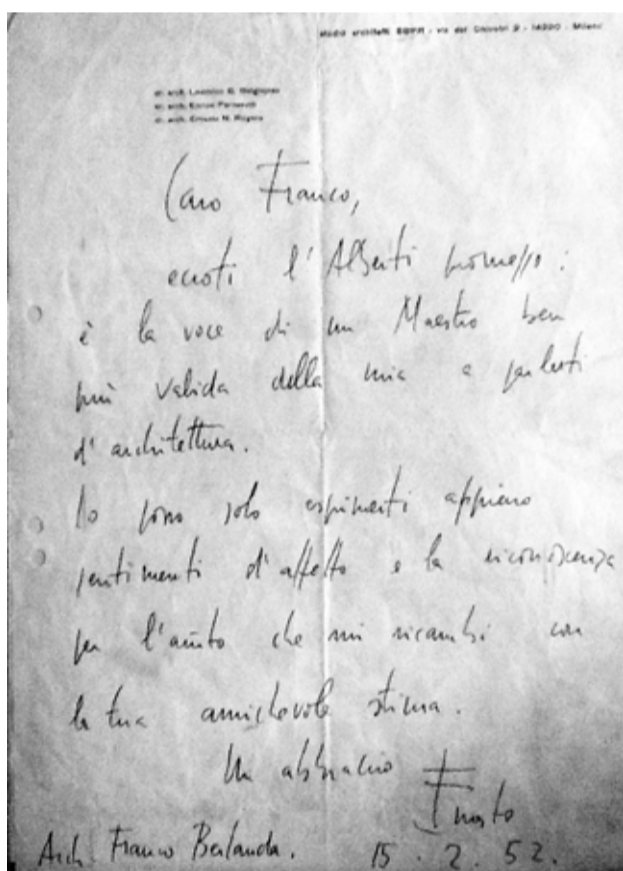 studio architetti BBPR - via dei Chiostri 2 - Milano
dr. arch. Lodovico B. Belgiojoso
dr. arch. Enrico Peressutti
dr. arch. Ernesto N. Rogers
Caro Franco,
eccoti l'Alberti promesso:
è la voce di un Maestro ben
più valida della mia a parlarti
d'architettura.
Io posso solo esprimerti appieno
sentimenti d'affetto e la riconoscenza
per l'aiuto che mi ricambi con
la tua amichevole stima.
Un abbraccio
Ernesto
Arch. Franco Berlanda. 15.2.52.